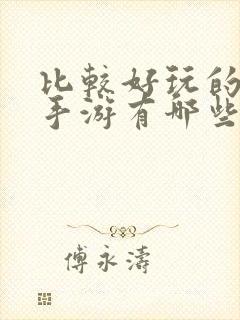 比较好玩的
手游有哪些
傅永濤